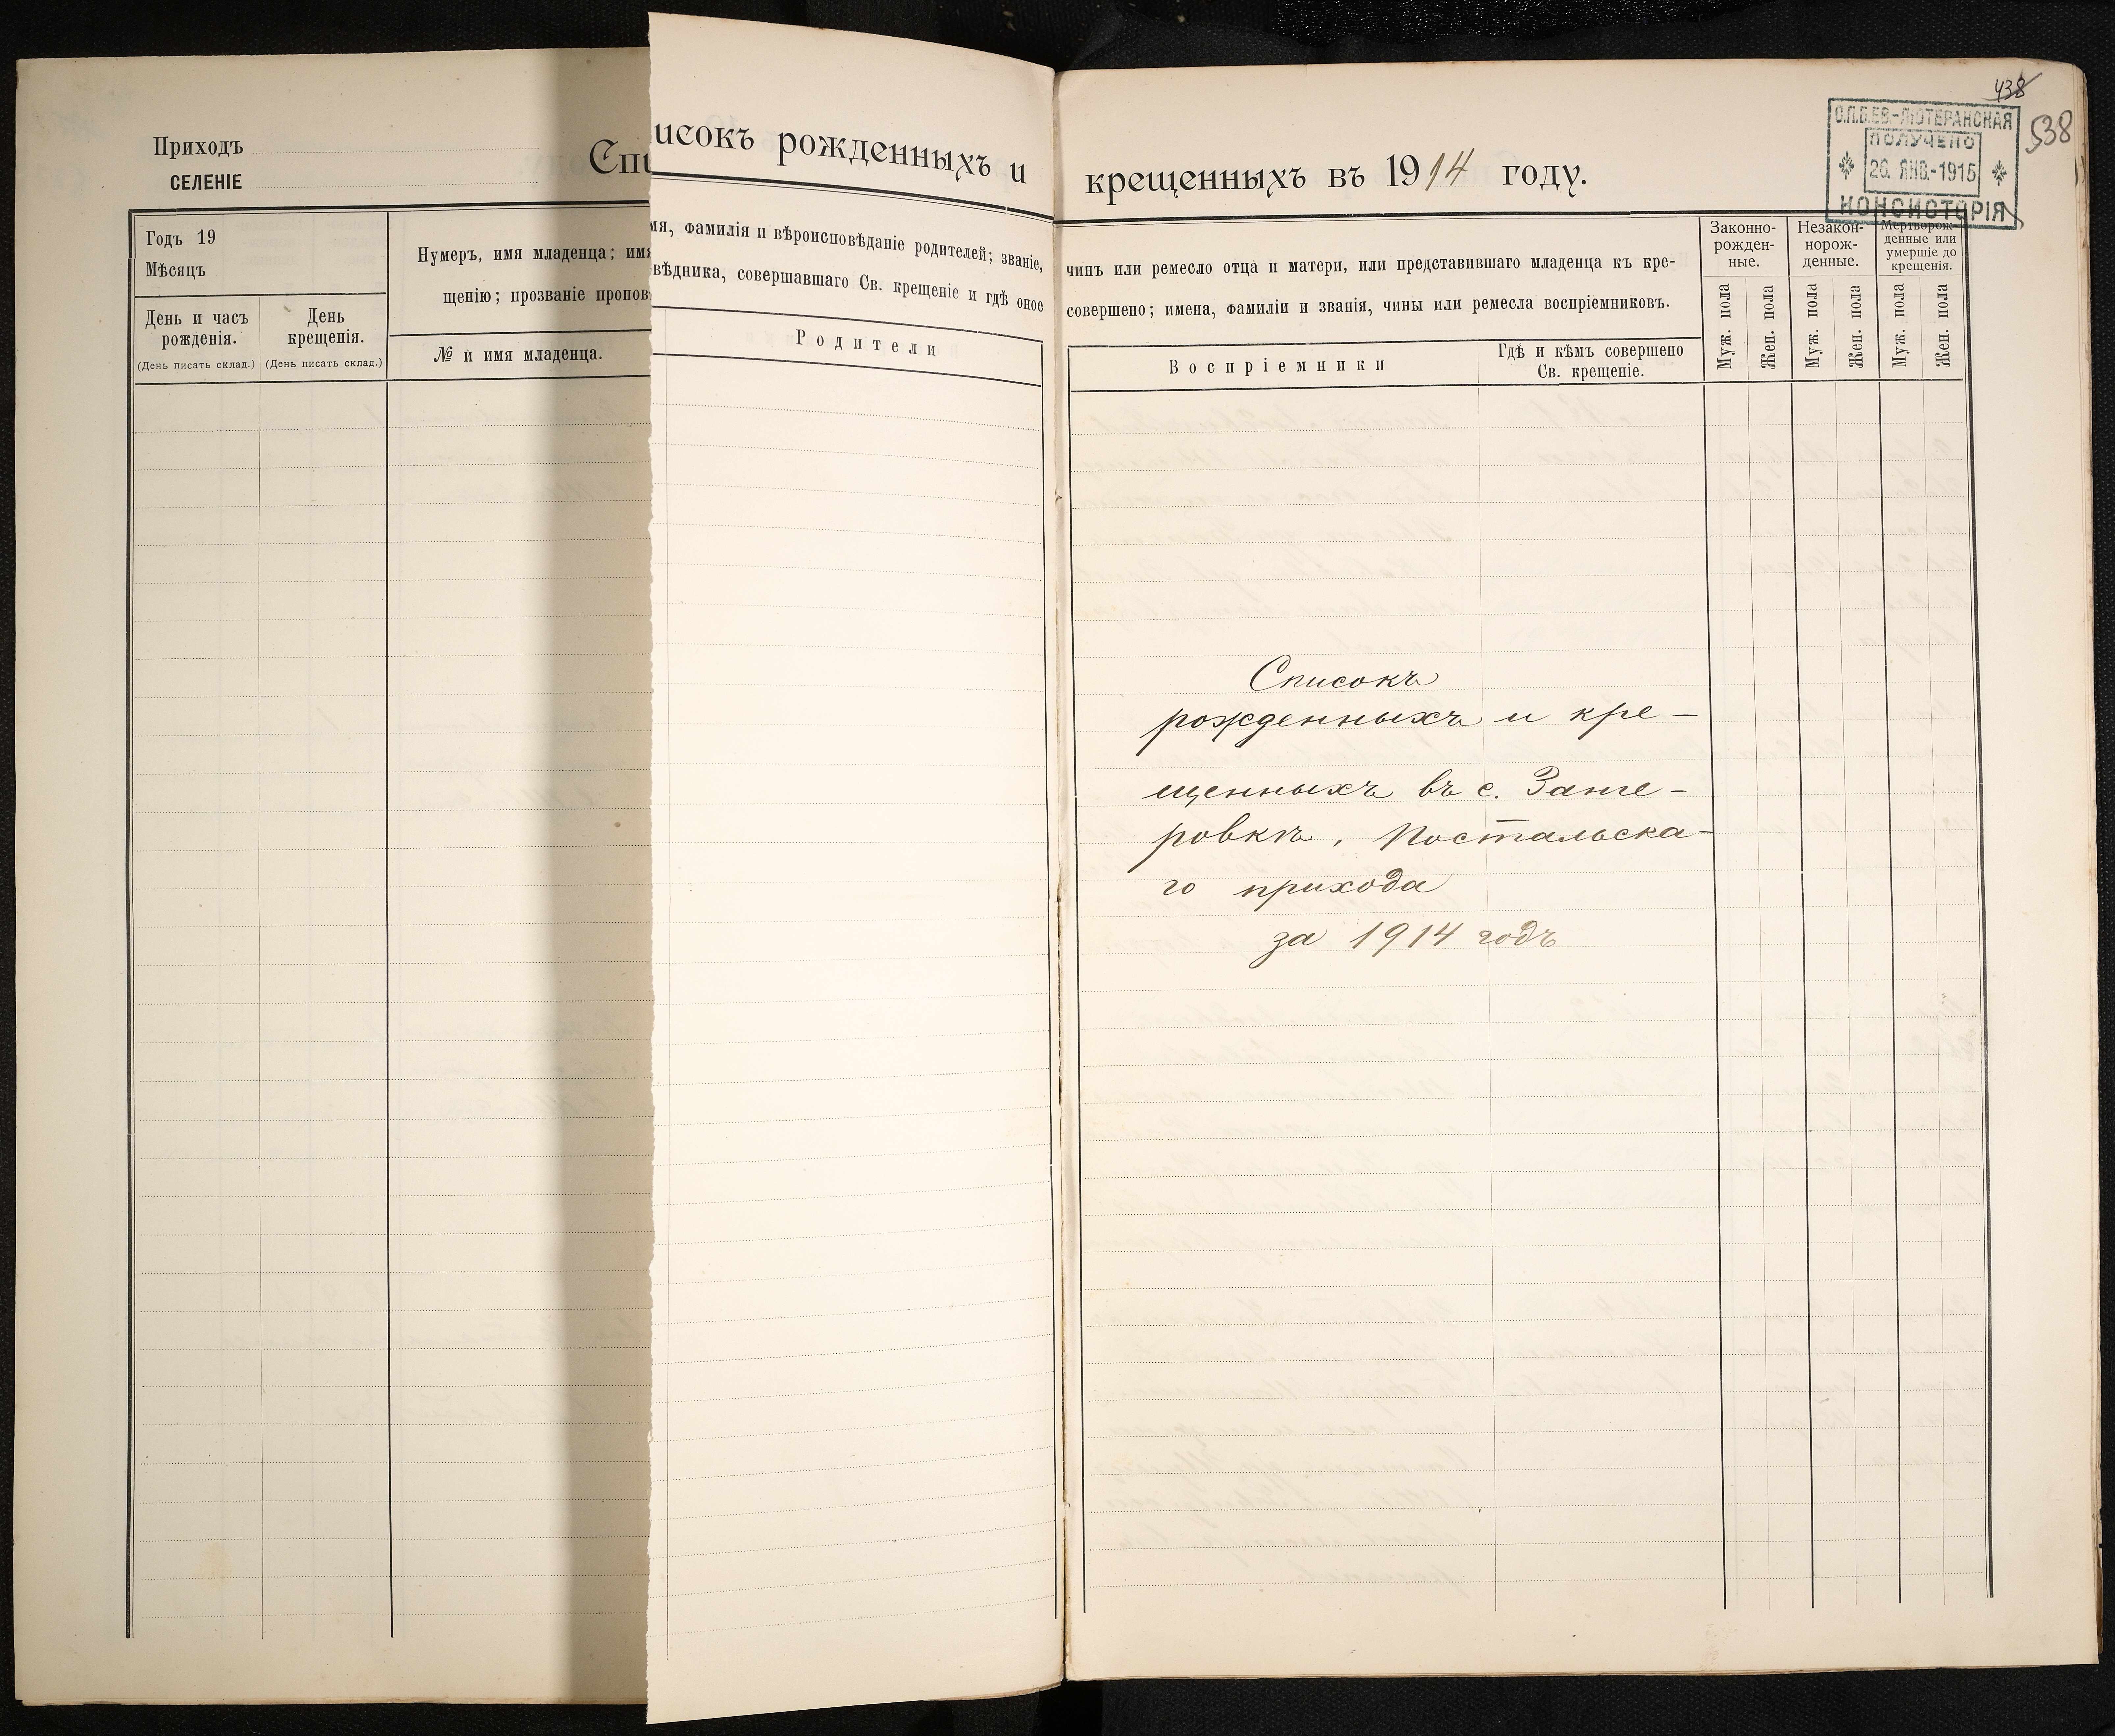 Приходъ
СЕЛЕНІЕ
Спи
исокъ рожденныхъ и
крещенныхъ въ 1914 году.
438
538
С.П.Б.ЕВ.-ЛЮТЕРАНСКАЯ
ПОЛУЧЕНО
26. ЯНВ.-1915
КОНСИСТОРІЯ
Годъ 19
Мѣсяцъ
День и часъ рожденія.
(День писать склад.)
День крещенія.
(День писать склад.)
Нумеръ, имя младенца; имя
щенію; прозваніе пропов
№ и имя младенца.
мя, фамилія и вѣроисповѣданіе родителей; званіе,
вѣдника, совершавшаго Св. крещеніе и гдѣ оное
Родители
чинъ или ремесло отца и матери, или представившаго младенца къ кре-
совершено; имена, фамиліи и званія, чины или ремесла воспріемниковъ.
Воспріемники
Гдѣ и кѣмъ совершено
Св. крещеніе.
Законно-
рожден-
ные.
Незакон-
норож-
денные.
Мертворож-
денные или
умершіе до
крещенія.
Муж. пола
Жен. пола
Муж. пола
Жен. пола
Муж. пола
Жен. пола
Списокъ
рожденныхъ и кре-
щенныхъ въ с.
ровкѣ, Постальска-
го прихода
за 1914 годъ